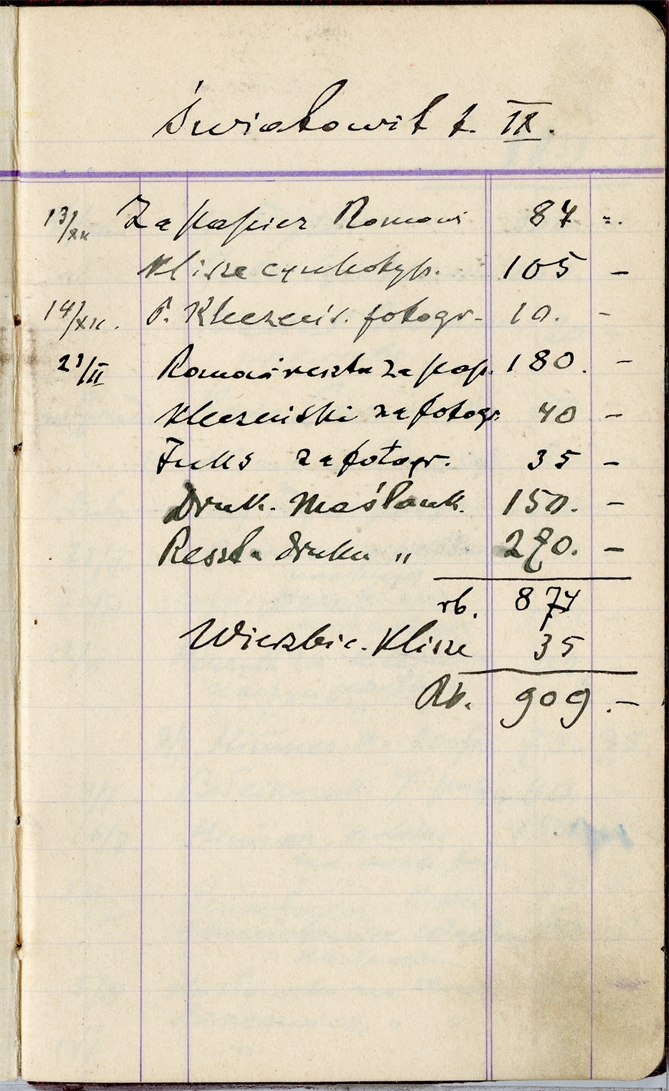 Światowit t. IX.
13/XII Za papier 84 -.
Klisze cynkotyp. 105 -
14/XII. P. Kleczeńs. fotogr. 10. -
21/II reszta za pap. 180. -
Kleczeński za fotogr. 40 -
Fuks za fotogr. 35 -
Druk. Maślank. 150. -
Reszta druku " 270. -
rb. 874
Wierzbic. Klisze 35
Rb. 909.-